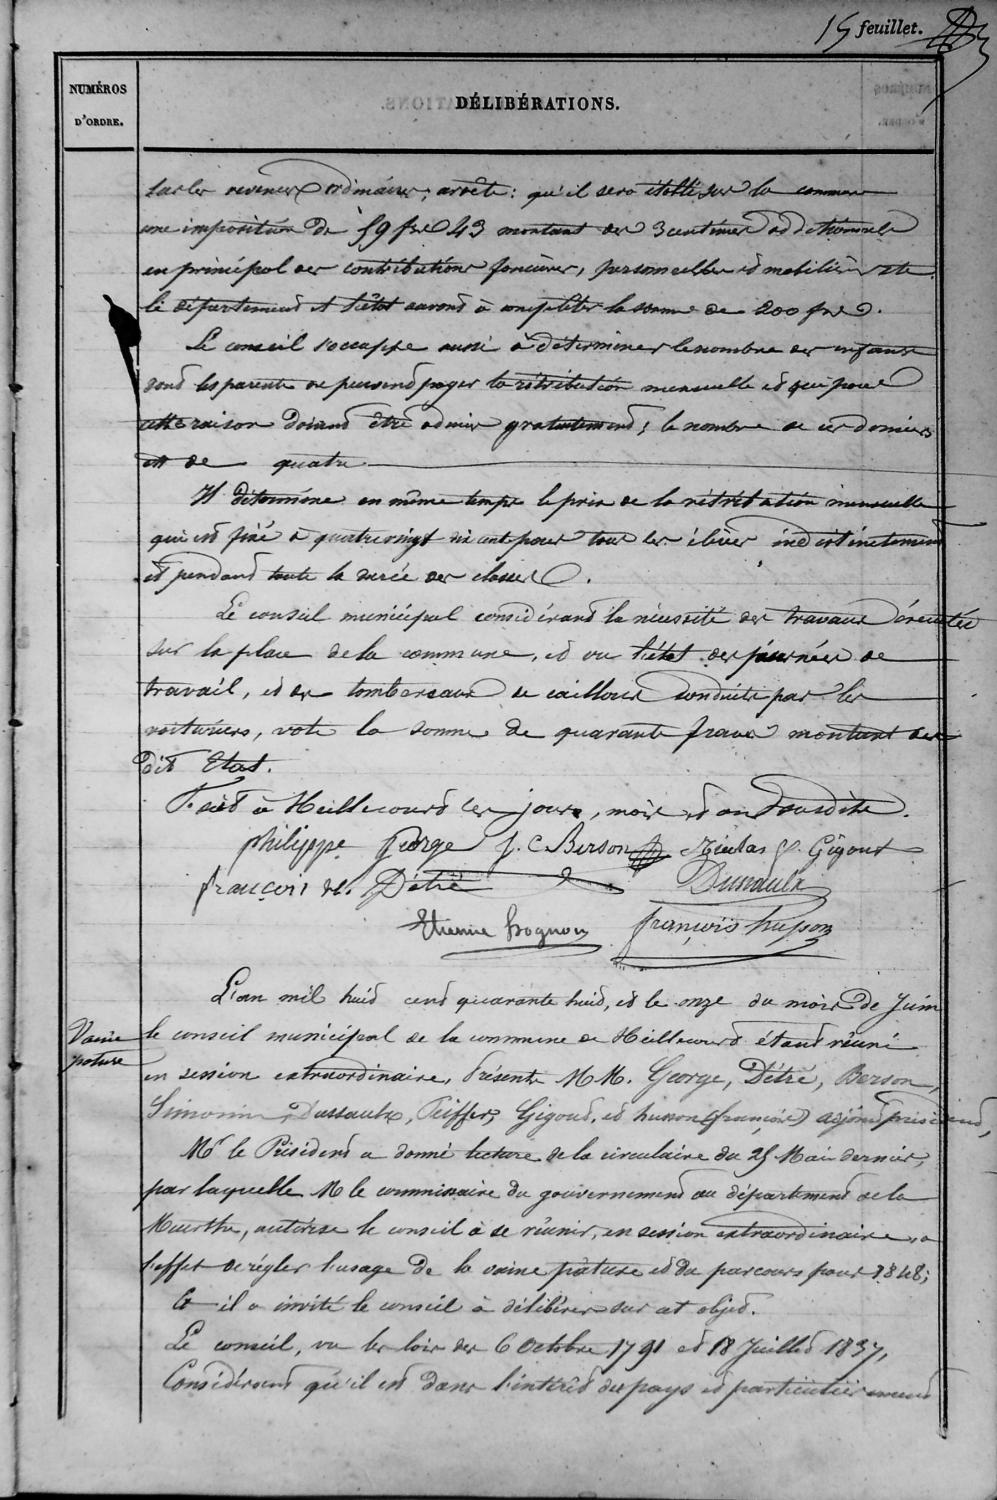 15 feuillet.
NUMÉROS D'ORDRE.
DÉLIBÉRATIONS.
sur les revenus ordinaires; arrête: qu'il sera établi sur la commune
une imposition de 59 frs 43 montant des 3 centimes additionnels
en principal des contributions foncières, personnelles et mobilières et
le département et l'état auront à compléter la somme de 200 frs.
Le conseil s'occuppe aussi à déterminer le nombre des enfants
dont les parents ne peuvent payer la rétribution mensuelle et qui pour
cette raison doivent être admis gratuitement; le nombre de ces derniers
est de quatre
Il détermine en même temps le prix de la rétribution mensuelle
qui est fixé à quatrevingt dix cent pour tous les élèves indistinctement
et pendant toute la durée des classes.
Le conseil municipal considérant la nécessité des travaux éxécutés
sur la place de la commune, et vu l'état des journées de
travail, et des tombereaux de cailloux conduits par les
voituriers, vote la somme de quarante francs montant des
dits Etat.
Fait à Heillecourt les jours, mois et an susdits.
philippe George J. C. Berson Nicolas Gigout
françois Détré Dussaulx
Etienne françois husson
L'an mil huit cent quarante huit, et le onze du mois de Juin
Vaine pature
le conseil municipal de la commune de Heillecourt étant réuni
en session extraordinaire, Présents MM. George, Détré, Berson,
Simonin, Dussaulx, Peiffer, Gigout, et husson (françois) adjoint président,
Mr le Président a donné lecture de la circulaire du 25 Mai dernier,
par laquelle M le commissaire du gouvernement au département de la
Meurthe, autorise le conseil à se réunir, en session extraordinaire, à
l'effet de régler l'usage de la vaine pâture et du parcours pour 1848;
Et il a invité le conseil à délibérer sur cet objet.
Le conseil, vu les lois des 6 Octobre 1791 et 18 Juillet 1837,
Considérant qu'il est dans l'intérêt du pays et particulièrement